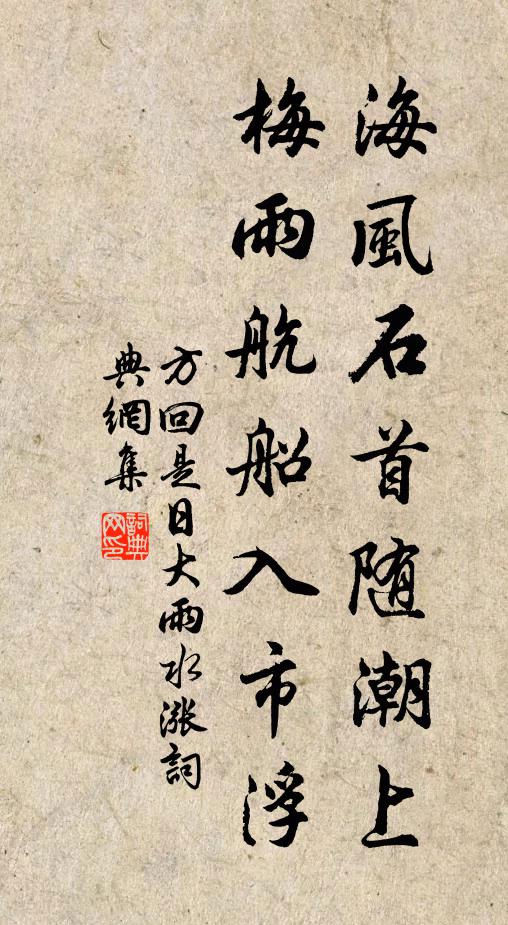 海風石首随潮上
梅雨航船入市浮
方回是日大雨水漲詞
典網集
詞典网印